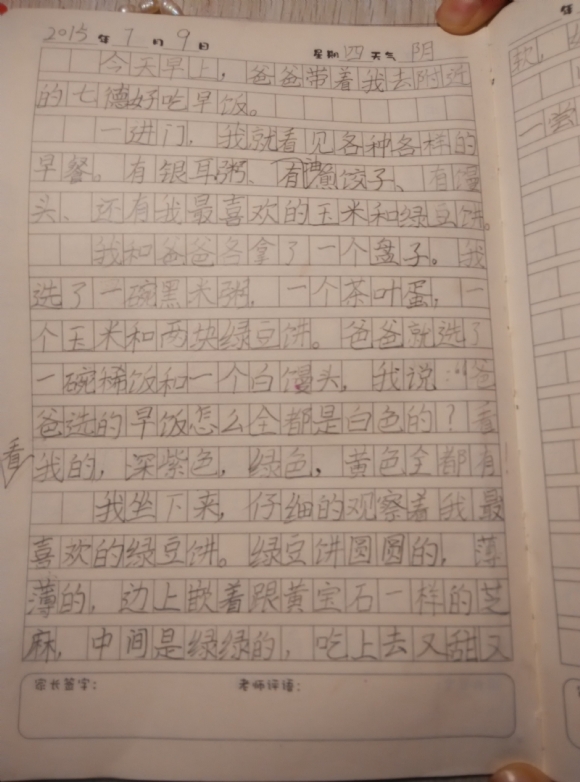 2015年7月9日 星期四天气阴
今天早上，爸爸带着我去附近
的七德好吃早饭。
一进门，我就看见各种各样的
早餐。有银耳粥、有煎饺子、有馒
头、还有我最喜欢的玉米和绿豆饼。
我和爸爸各拿了一个盘子。我
选了一碗黑米粥，一个茶叶蛋，一
个玉米和两块绿豆饼。爸爸就选了
一碗稀饭和一个白馒头，我说："爸
爸选的早饭怎么全都是白色的？看
看
我的，深紫色，绿色，黄色全都有
我坐下来，仔细的观察着我最
喜欢的绿豆饼。绿豆饼圆圆的，薄
薄的，边上嵌着跟黄宝石一样的芝
麻，中间是绿绿的，吃上去又甜又
家长签字： 老师评语：
年
欢，
一尝